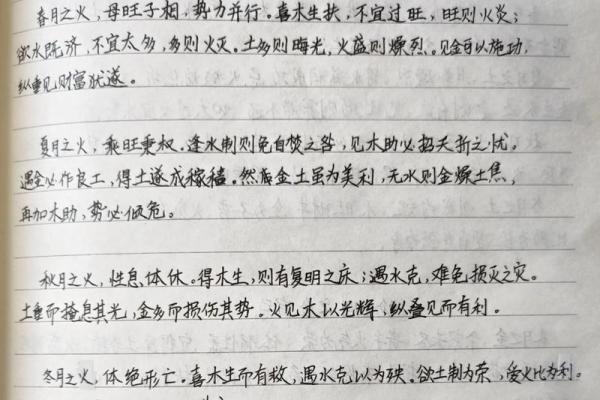 春月之火，母旺子相，势力并行。喜木生扶，不宜过旺，旺则火炎；
欲水既济，不宜太多，多则火灭。土多则晦光，火盛则燥烈。见金可以施功，
纵重见财富犹遂。
夏月之火，乘旺秉权。逢水制则免自焚之咎，见木助必招夭折之忧。
遇金必作良工，得土遂成稼穑。然金土虽为美利，无水则金燥土焦，
再加木助，势必倾危。
秋月之火，性息体休。得木生，则有复明之庆；遇水克，难免损灭之灾。
土重而掩息其光，金多而损伤其势。火见木以光辉，纵叠见而有利。
冬月之火，体绝形亡。喜木生而有救，遇水克以为殃。欲土制为荣，爱火比为利。